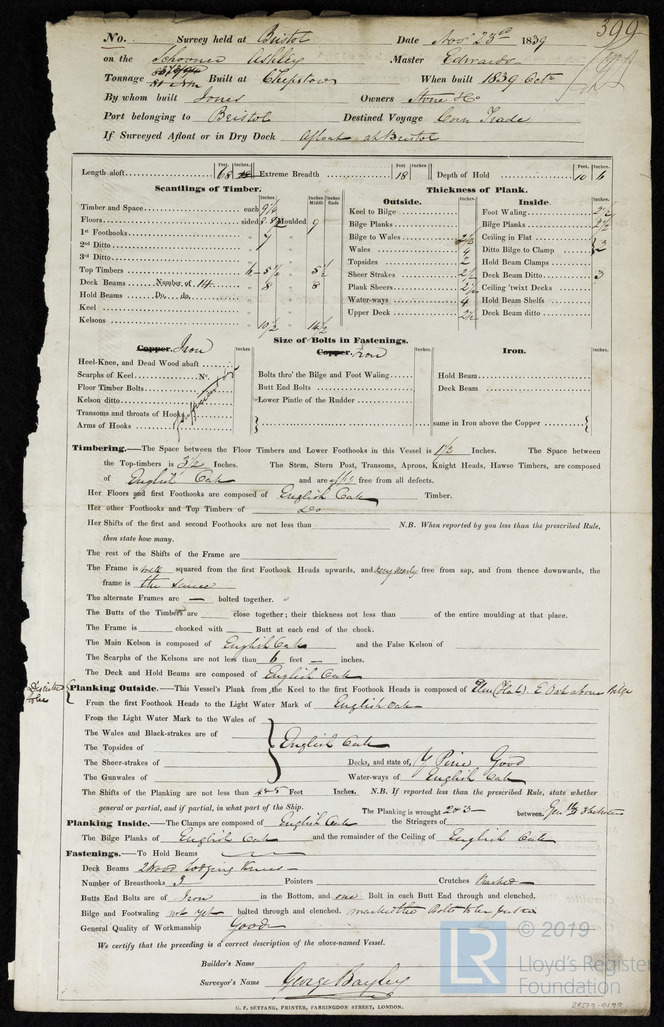 399
No. Survey held at Bristol Date Novr 23rd 1839
on the Schooner Ashley Master Edwards
Tonnage Built at Chepstow When built 1839 Octr
By whom built Jones Owners Stone & Co
Port belonging to Bristol Destined Voyage Corn Trade
If Surveyed Afloat or in Dry Dock Afloat at Bristol
Feet. Inches. Feet. Inches. Feet. Inches.
Length aloft 68 Extreme Breadth 18 Depth of Hold 10 6
Scantlings of Timber. Thickness of Plank.
Outside. Inside.
Timber and Space each 9 1/2
Floors sided Moulded 9
1st Foothooks 7
2nd Ditto
3rd Ditto
Top Timbers 5 1/2
Deck Beams Number of 14 8 8
Hold Beams Do. do.
Keel
Kelsons 10 1/2 14 1/2
Keel to Bilge
Bilge Planks
Bilge to Wales 2 1/2
Wales 4
Topsides 2
Sheer Strakes 2 1/2
Plank Sheers 2 1/2
Water-ways 4
Upper Deck 2 1/2
Foot Waling 2 1/2
Bilge Planks 2 1/2
Ceiling in Flat
Ditto Bilge to Clamp } 2
Hold Beam Clamps
Deck Beam Ditto 3
Ceiling 'twixt Decks
Hold Beam Shelfs
Deck Beam ditto
Size of Bolts in Fastenings.
Copper. Iron Copper. Iron Iron.
Heel-Knee, and Dead Wood abaft
Scarphs of Keel No.
Floor Timber Bolts
Kelson ditto
Transoms and throats of Hooks
Arms of Hooks
Bolts thro' the Bilge and Foot Waling
Butt End Bolts
Lower Pintle of the Rudder
Hold Beam
Deck Beam
same in Iron above the Copper
Timbering.—The Space between the Floor Timbers and Lower Foothooks in this Vessel is 1 1/2 Inches. The Space between
the Top-timbers is 3 1/2 Inches. The Stem, Stern Post, Transoms, Aprons, Knight Heads, Hawse Timbers, are composed
of English Oak and are free from all defects.
Her Floors and first Foothooks are composed of English Oak Timber.
Her other Foothooks and Top Timbers of Do
Her Shifts of the first and second Foothooks are not less than N.B. When reported by you less than the prescribed Rule,
then state how many.
The rest of the Shifts of the Frame are
The Frame is well squared from the first Foothook Heads upwards, and very nearly free from sap, and from thence downwards, the
frame is the same
The alternate Frames are — bolted together.
The Butts of the Timbers are close together; their thickness not less than of the entire moulding at that place.
The Frame is chocked with Butt at each end of the chock.
The Main Kelson is composed of English Oak and the False Kelson of
The Scarphs of the Kelsons are not less than 6 feet — inches.
The Deck and Hold Beams are composed of English Oak
Planking Outside.—This Vessel's Plank from the Keel to the first Foothook Heads is composed of Elm (Flat) E Oak above Bilge
From the first Foothook Heads to the Light Water Mark of English Oak
From the Light Water Mark to the Wales of
The Wales and Black-strakes are of
The Topsides of English Oak
The Sheer-strakes of Decks, and state of, Y Pine Good
The Gunwales of Water-ways of English Oak
The Shifts of the Planking are not less than 4 & 5 Feet Inches. N.B. If reported less than the prescribed Rule, state whether
general or partial, and if partial, in what part of the Ship.
The Planking is wrought 2 & 3 between.
Planking Inside.—The Clamps are composed of English Oak the Stringers of
The Bilge Planks of English Oak and the remainder of the Ceiling of English Oak
Fastenings.—To Hold Beams
Deck Beams 2 Wood lodging Knees
Number of Breasthooks 3 Pointers Crutches
Butts End Bolts are of Iron in the Bottom, and one Bolt in each Butt End through and clenched.
Bilge and Footwaling not yet bolted through and clenched.
General Quality of Workmanship Good
We certify that the preceding is a correct description of the above-named Vessel.
Builder's Name
Surveyor's Name George Bayley
C. F. SEYFANG, PRINTER, FARRINGDON STREET, LONDON.
LR © 2019
Lloyd's Register
Foundation